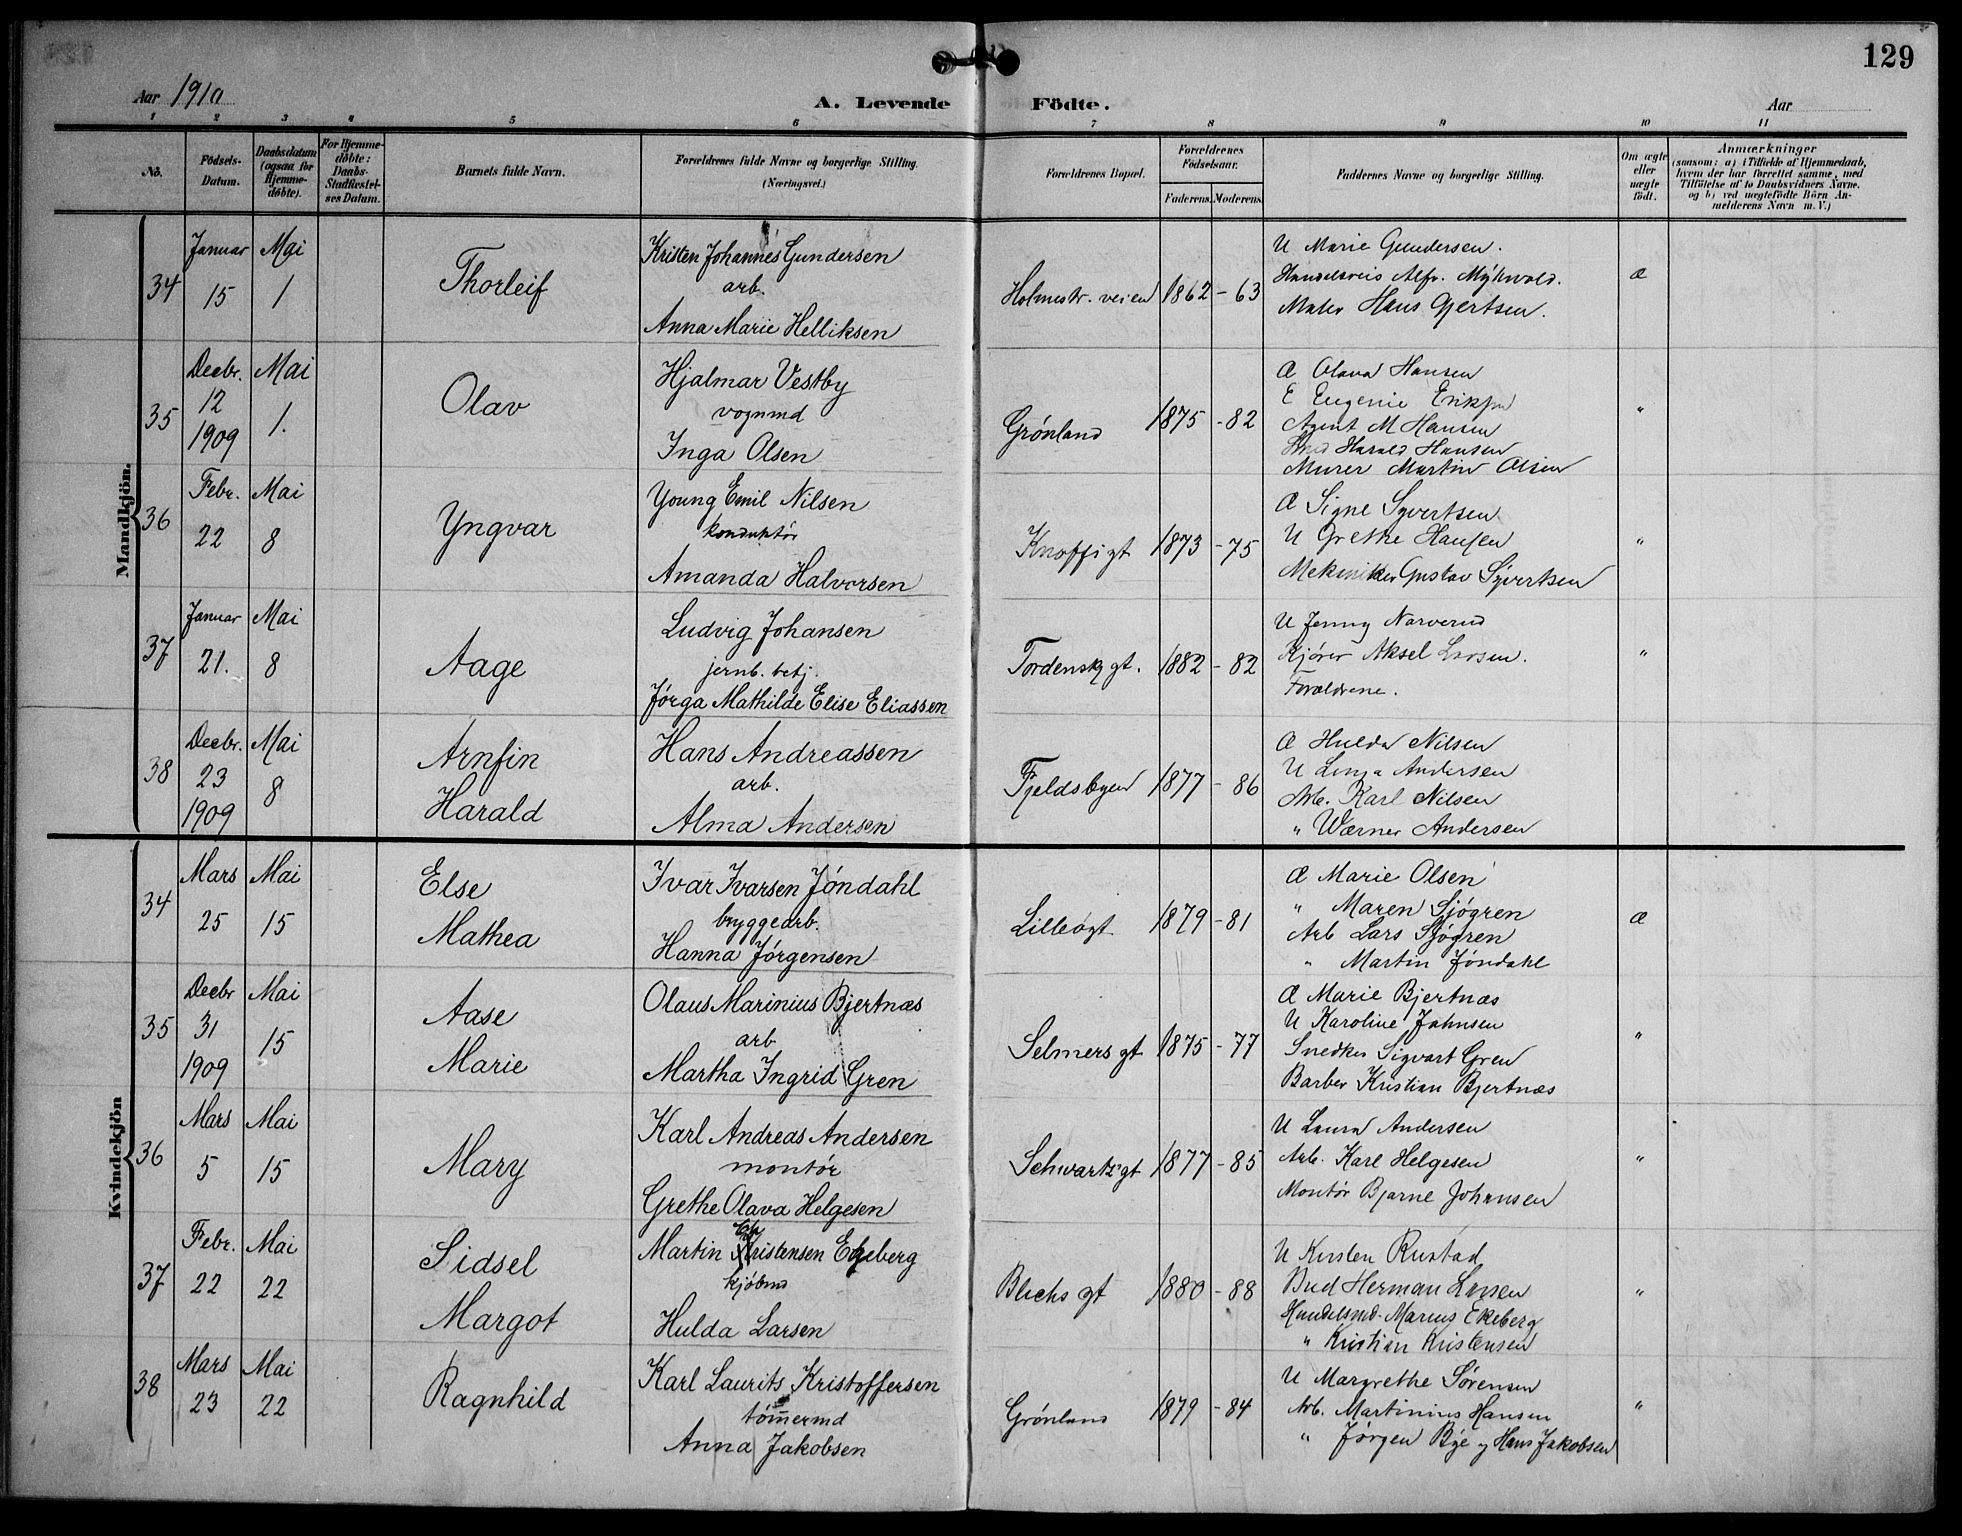 129
Aar 1910 A. Levende Födte. Aar
1 2 3 4 5 6 7 8 9 10 11
No. Födsels-Datum. Daabsdatum (ogsaa for Hjemmedöbte). For Hjemmedöbte: Daabs-Stadfæstelses Datum. Barnets fulde Navn. Forældrenes fulde Navne og borgerlige Stilling. (Næringsvei.) Forældrenes Bopæl. Forældrenes Födselsaar. Faderens. Moderens. Faddernes Navne og borgerlige Stilling. Om ægte eller uægte födt. Anmærkninger (saasom: a) i Tilfælde af Hjemmedaab, hvem der har forrettet samme, med Tilföielse af to Daabsvidners Navne. og b) ved uægtefödte Börn Anmelderens Navn m. V.)
Mandkjön.
34 Januar 15 Mai 1 Thorleif
Kristen Johannes Gundersen
arb.
Anna Marie Helliksen
Holmestr. veien 1862 - 63
U Marie Gundersen.
Handelsreis Alfr. Mykvold.
Maler Hans Gjertsen.
æ
35 Decbr. 12 1909 Mai 1. Olav
Hjalmar Vestby
vognmd
Inga Olsen
Grønland 1875 - 82
Æ Olava Hansen
E Eugenie Eriksen
Agent M Hansen
Smed Harald Hansen
Murer Martin Olsen
"
36 Febr. 22 Mai 8 Yngvar
Young Emil Nilsen
konduktør
Amanda Halvorsen
Knoffs gt 1873 - 75
Æ Signe Syvertsen
U Grethe Hansen
Mekaniker Gustav Syvertsen
"
37 Januar 21. Mai 8 Aage
Ludvig Johansen
jernb. betj.
Jørga Mathilde Elise Eliassen
Tordensk gt. 1882 - 82
U Jenny Narverud
Kjører Aksel Larsen.
Forældrene.
"
38 Decbr. 23 1909 Mai 8 Arnfin Harald
Hans Andreassen
arb.
Alma Andersen
Fjeldsbyen 1877 - 86
Æ Hulda Nilsen
U Andersen
Arb. Karl Nilsen
" Wærner Andersen
Kvindekjön
34 Mars 25 Mai 15 Else Mathea
Ivar Ivarsen Jøndahl
bryggearb.
Hanna Jørgensen
Lilleøgt 1879 - 81
Æ Marie Olsen
" Maren Sjøgren
Arb Lars Sjøgren
" Martin Jøndahl
æ
35 Decbr 31 1909 Mai 15 Aase Marie
Olaus Marinius Bjertnæs
arb
Martha Ingrid Gren
Selmers gt 1875 - 77
Æ Marie Bjertnæs
U Karoline Johnsen
Snedker Sigvart Gren
Barber Kristian Bjertnæs
"
36 Mars 5 Mai 15 Mary
Karl Andreas Andersen
montør
Grethe Olava Helgesen
Schwartz gt 1877 - 85
U Laura Andersen
Arb. Karl Helgesen
Montør Bjarne Johansen
"
37 Febr. 22 Mai 22 Sidsel Margot
Martin Kristensen Ekeberg
kjøbmd
Hulda Larsen
Blichs gt 1880 - 88
U Kirsten Rustad
Bud Herman Larsen
Handelsmd. Marius Ekeberg
" Kristian Kristensen
"
38 Mars 23 Mai 22 Ragnhild
Karl Laurits Kristoffersen
tømmermd
Anna Jakobsen
Grønland 1879 - 84
U Margrethe Sørensen
Arb. Martinius Hansen
" Jørgen Bye og Hans Jakobsen
"